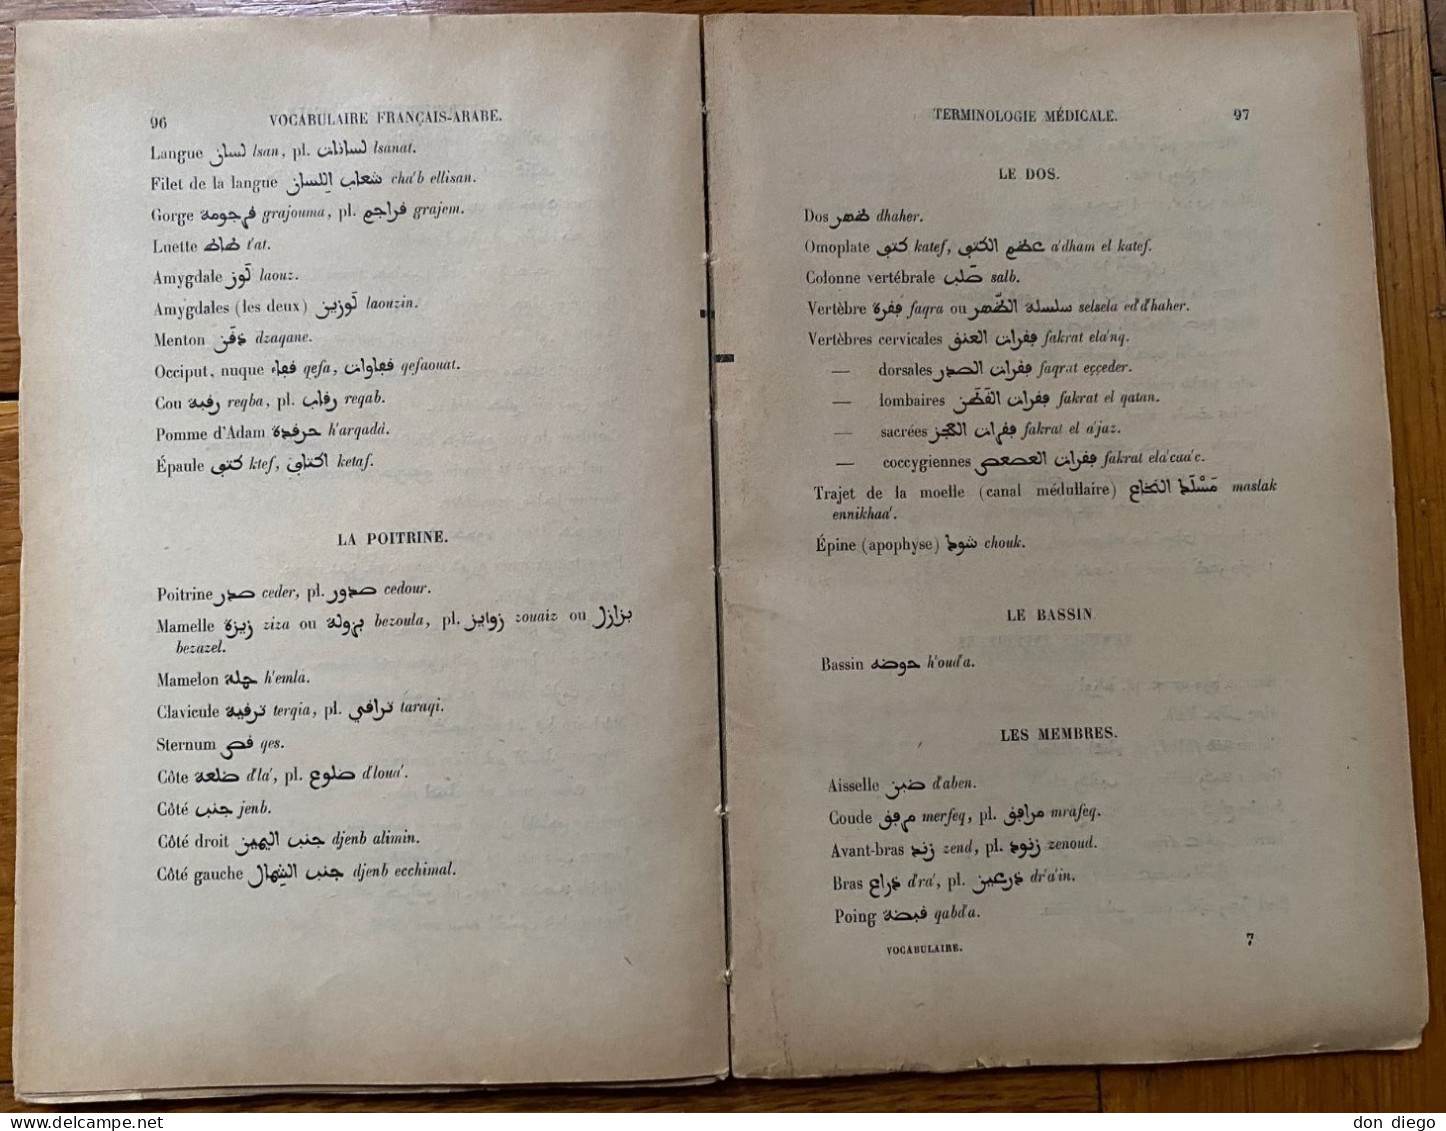 96 VOCABULAIRE FRANÇAIS-ARABE.
Langue لسان lsan, pl. لسانات lsanat.
Filet de la langue شعاب اللِسان cha'b ellisan.
Gorge ڤرجومة grajouma, pl. ڤراجم grajem.
Luette طاط t'at.
Amygdale لَوز laouz.
Amygdales (les deux) لَوزين laouzin.
Menton ذفَن dzaqane.
Occiput, nuque ففاء qefa, ففاوات qefaouat.
Cou رفبة reqba, pl. رفاب reqab.
Pomme d'Adam حرفدة h'arqadà.
Épaule كتڢ ktef, اكتاڢ ketaf.
LA POITRINE.
Poitrine صدر ceder, pl. صدور cedour.
Mamelle زيزة ziza ou بزولة bezoula, pl. زوايز zouaiz ou بزازل
bezazel.
Mamelon حملة h'emla.
Clavicule ترفية terqia, pl. ترافي taraqi.
Sternum فص qes.
Côte ضلعة d'la', pl. ضلوع d'loua'.
Côté جنب jenb.
Côté droit جنب اليمين djenb alimin.
Côté gauche جنب الشِمال djenb ecchimal.
TERMINOLOGIE MÉDICALE. 97
LE DOS.
Dos ظهر dhaher.
Omoplate كتڢ katef, عظم الكتڢ a'dham el katef.
Colonne vertébrale صَلب salb.
Vertèbre ففرة faqra ou سلسلة الظّهر selsela ed'd'haher.
Vertèbres cervicales ففرات العنق fakrat ela'nq.
— dorsales ففرات الصدر faqrat eççeder.
— lombaires ففرات الفَطَن fakrat el qatan.
— sacrées ففرات العجز fakrat el a'jaz.
— coccygiennes ففرات العصعص fakrat ela'caa'c.
Trajet de la moelle (canal médullaire) مَسْلَك النخاع maslak
ennikhaa'.
Épine (apophyse) شوك chouk.
LE BASSIN.
Bassin حوضه h'oud'a.
LES MEMBRES.
Aisselle ضبن d'aben.
Coude مرفق merfeq, pl. مرافق mrafeq.
Avant-bras زند zend, pl. زنود zenoud.
Bras ذراع d'ra', pl. ذرعين dr'a'in.
Poing فبضة qabd'a.
VOCABULAIRE. 7
don diego